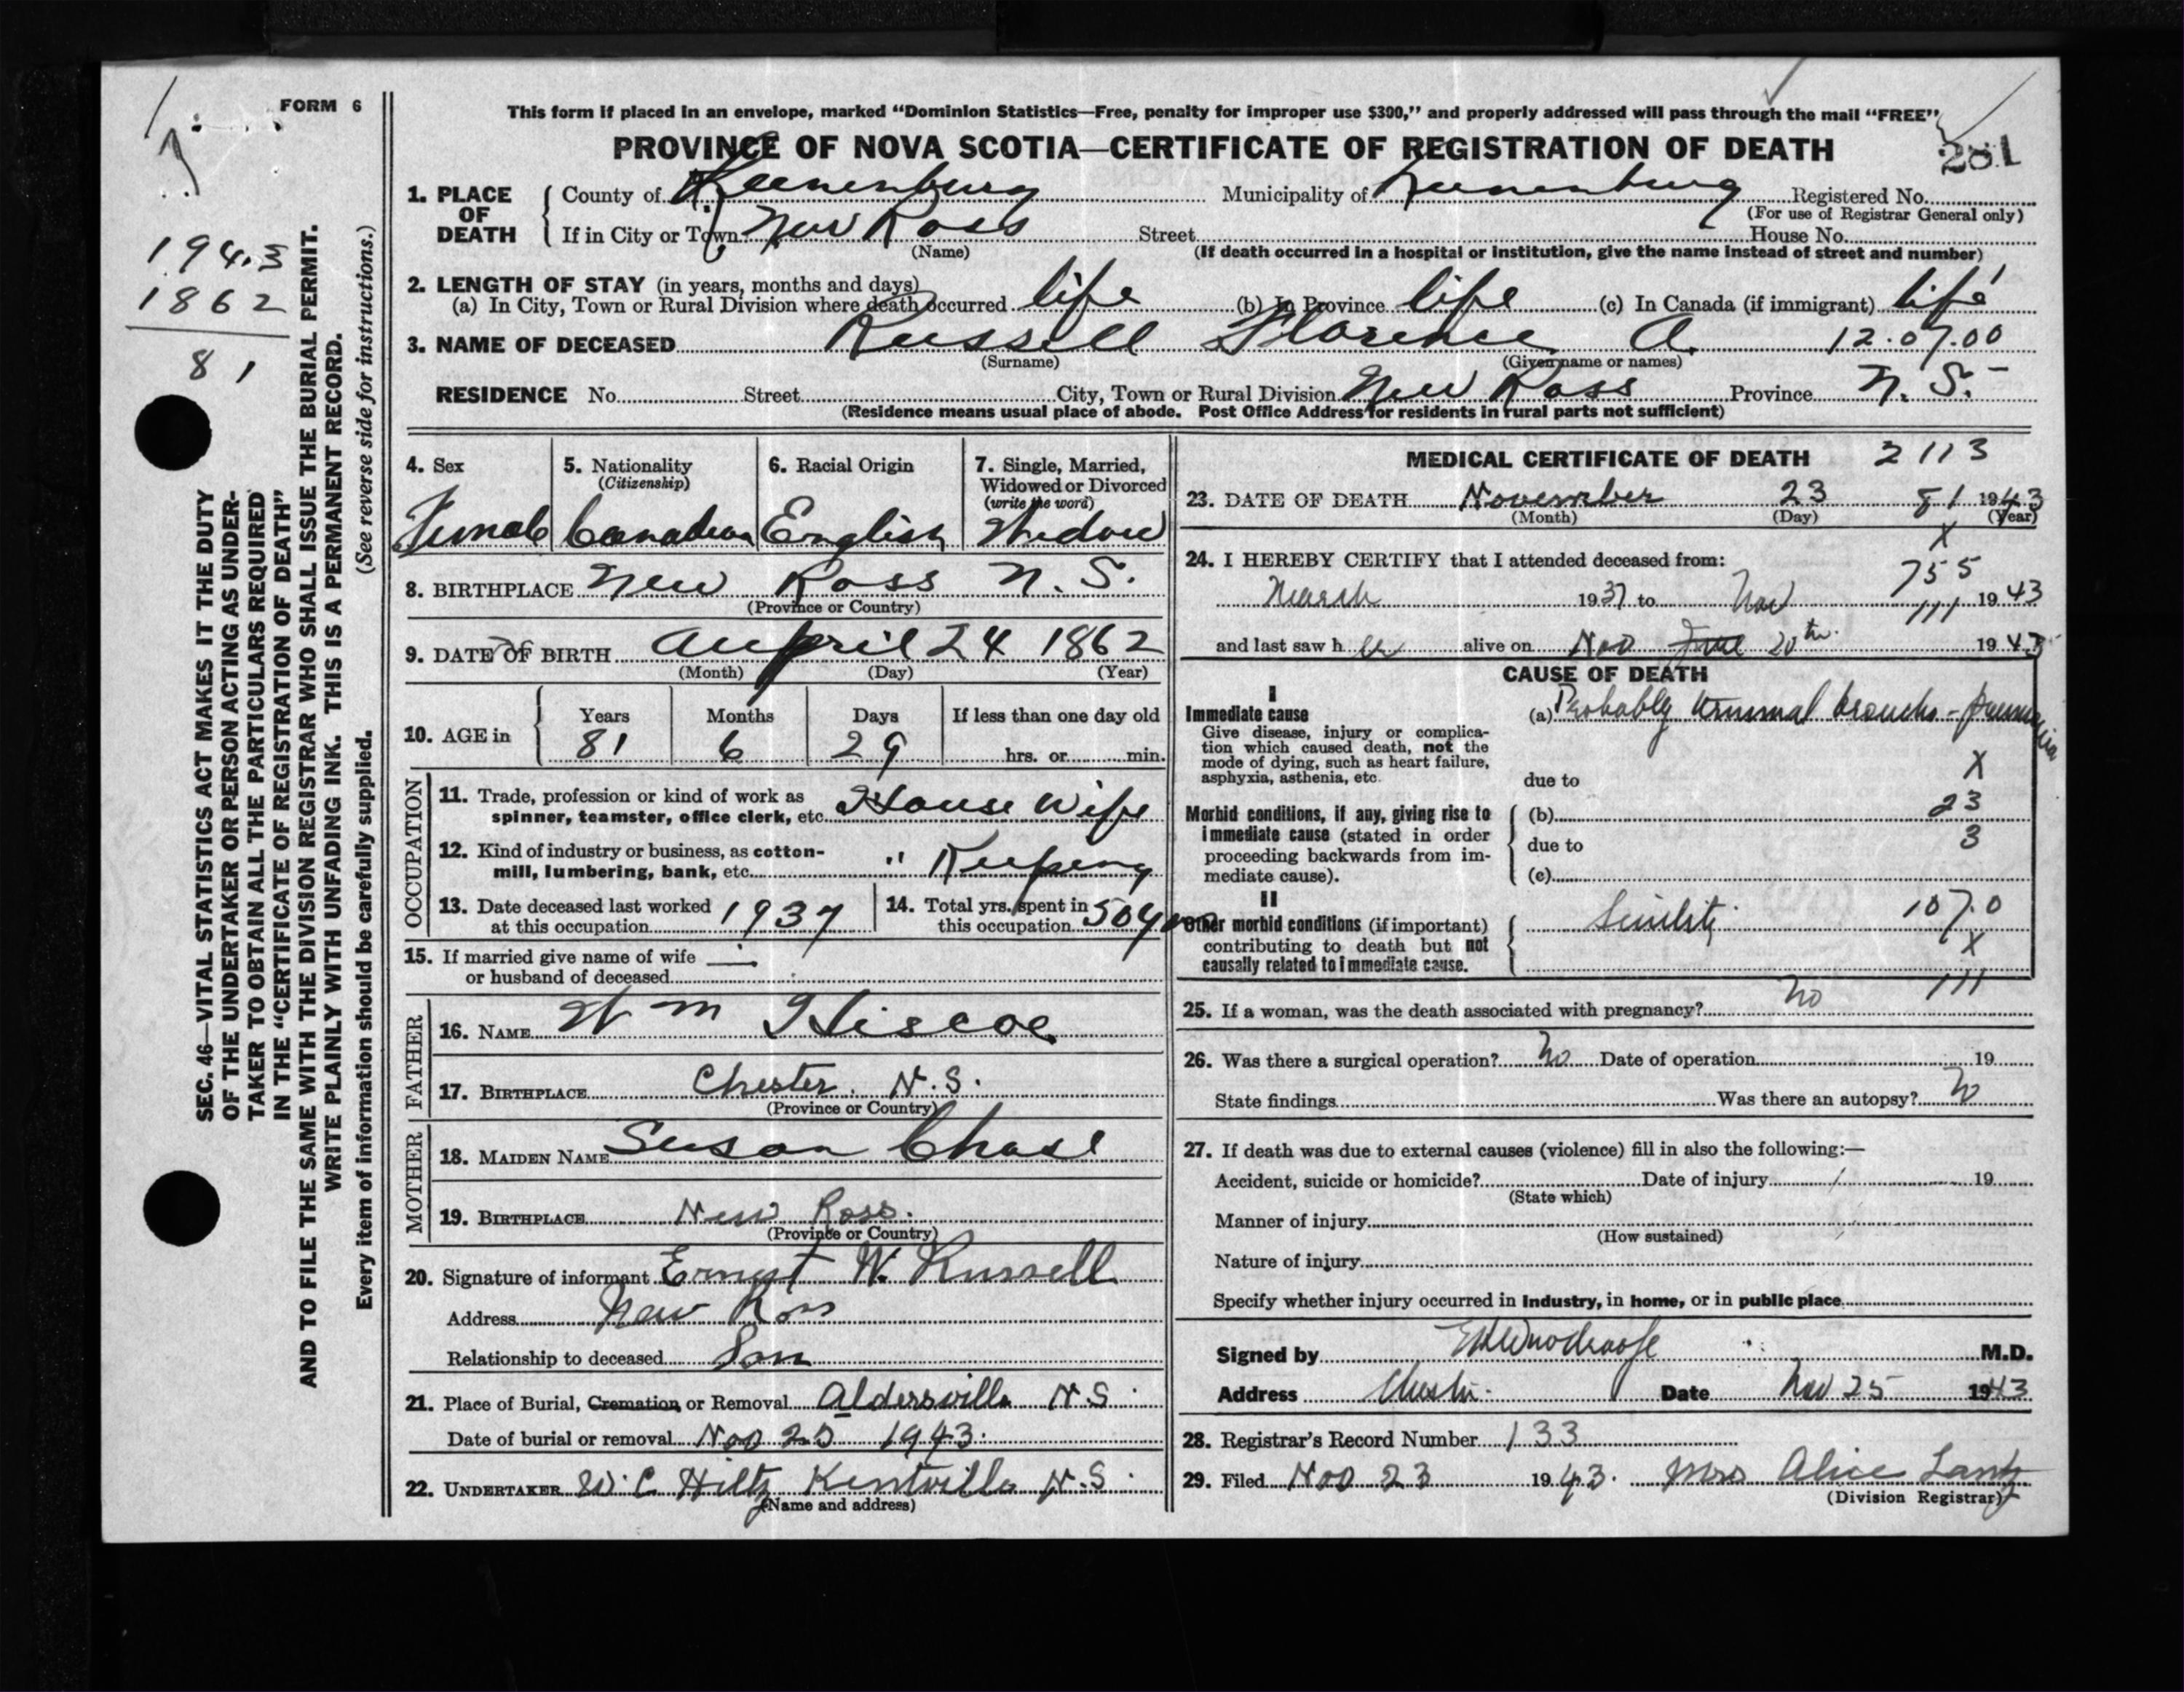 FORM 6
This form if placed in an envelope, marked “Dominion Statistics—Free, penalty for improper use $300,” and properly addressed will pass through the mail “FREE”
PROVINCE OF NOVA SCOTIA—CERTIFICATE OF REGISTRATION OF DEATH
201
1. PLACE OF DEATH County of Lunenburg Municipality of Lunenburg Registered No.
(For use of Registrar General only)
If in City or Town New Ross Street House No.
(Name) (If death occurred in a hospital or institution, give the name instead of street and number)
2. LENGTH OF STAY (in years, months and days)
(a) In City, Town or Rural Division where death occurred life (b) In Province life (c) In Canada (if immigrant) life
3. NAME OF DECEASED Russell Florence A. 12.07.00
(Surname) (Given name or names)
RESIDENCE No. Street City, Town or Rural Division New Ross Province N. S.
(Residence means usual place of abode. Post Office Address for residents in rural parts not sufficient)
1943
1862
81
SEC. 46—VITAL STATISTICS ACT MAKES IT THE DUTY
OF THE UNDERTAKER OR PERSON ACTING AS UNDER-
TAKER TO OBTAIN ALL THE PARTICULARS REQUIRED
IN THE “CERTIFICATE OF REGISTRATION OF DEATH”
AND TO FILE THE SAME WITH THE DIVISION REGISTRAR WHO SHALL ISSUE THE BURIAL PERMIT.
WRITE PLAINLY WITH UNFADING INK. THIS IS A PERMANENT RECORD.
Every item of information should be carefully supplied. (See reverse side for instructions.)
4. Sex Female
5. Nationality (Citizenship) Canadian
6. Racial Origin English
7. Single, Married, Widowed or Divorced (write the word) Widow
8. BIRTHPLACE New Ross N. S.
(Province or Country)
9. DATE OF BIRTH April 24 1862
(Month) (Day) (Year)
10. AGE in Years 81 Months 6 Days 29 If less than one day old hrs. or min.
OCCUPATION
11. Trade, profession or kind of work as spinner, teamster, office clerk, etc. House Wife
12. Kind of industry or business, as cotton-mill, lumbering, bank, etc. " Keeping
13. Date deceased last worked at this occupation 1937
14. Total yrs. spent in this occupation 50 yrs
15. If married give name of wife or husband of deceased —
FATHER
16. NAME Wm Hiscoe
17. BIRTHPLACE Chester. N.S.
(Province or Country)
MOTHER
18. MAIDEN NAME Susan Chase
19. BIRTHPLACE New Ross.
(Province or Country)
20. Signature of informant Ernest W. Russell
Address New Ross
Relationship to deceased Son
21. Place of Burial, Cremation or Removal Aldersville N.S.
Date of burial or removal Nov 25 1943.
22. UNDERTAKER W. C. Hiltz Kentville N.S.
(Name and address)
MEDICAL CERTIFICATE OF DEATH 2113
23. DATE OF DEATH November 23 81 1943
(Month) (Day) (Year)
X
24. I HEREBY CERTIFY that I attended deceased from:
755
March 1937 to Nov 1943
111
and last saw her alive on Nov 20th 1943
CAUSE OF DEATH
I
Immediate cause
Give disease, injury or complication which caused death, not the mode of dying, such as heart failure, asphyxia, asthenia, etc.
(a) Probably terminal broncho-pneumonia
due to X
Morbid conditions, if any, giving rise to immediate cause (stated in order proceeding backwards from immediate cause).
(b) 23
due to 3
(c)
II
Other morbid conditions (if important) contributing to death but not causally related to immediate cause.
Senility 107.0
X
111
25. If a woman, was the death associated with pregnancy? no
26. Was there a surgical operation? No Date of operation 19
State findings Was there an autopsy? No
27. If death was due to external causes (violence) fill in also the following:—
Accident, suicide or homicide? Date of injury 19
(State which)
Manner of injury
(How sustained)
Nature of injury
Specify whether injury occurred in industry, in home, or in public place
Signed by M.D.
Address Chester Date Nov 25 1943
28. Registrar’s Record Number 133
29. Filed Nov 23 1943. Mrs Alice Lantz
(Division Registrar)